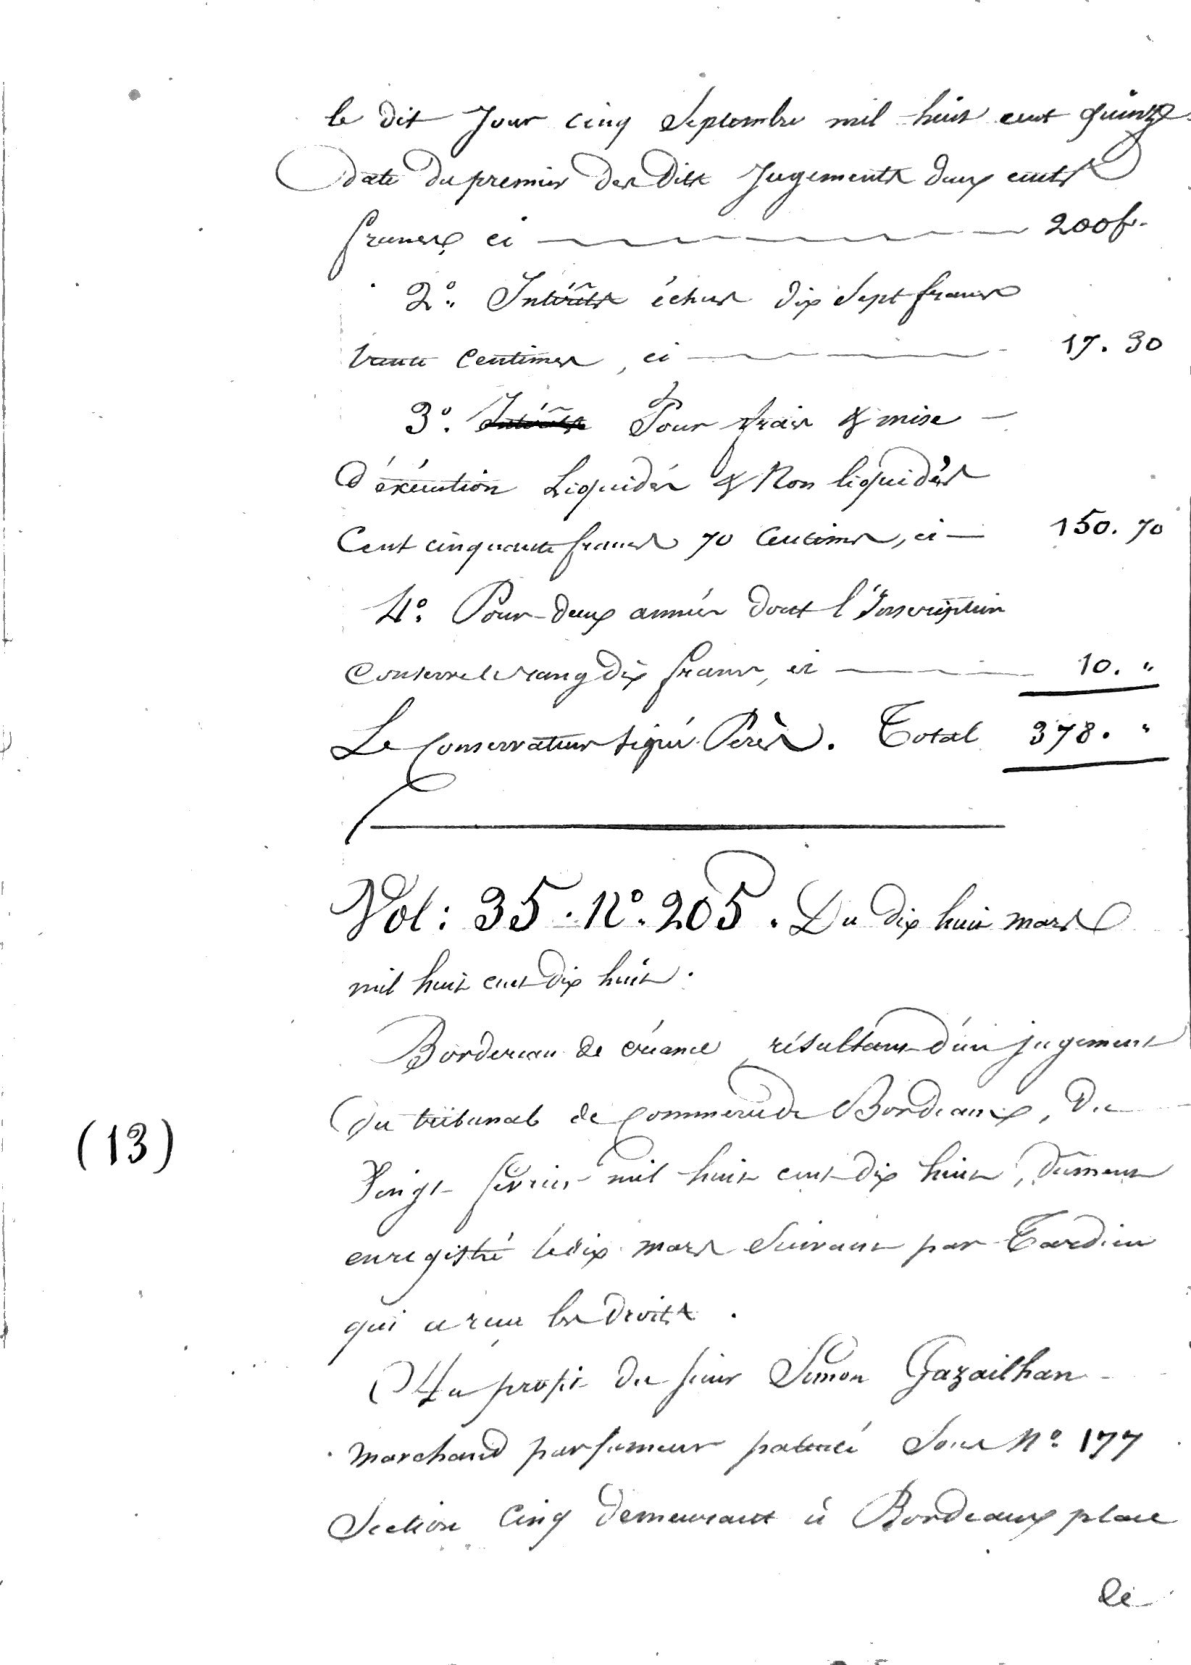 le dit Jour cinq Septembre mil huit cent quinze
date du premier des dits Jugements deux cents
francs ci 200 f.
2°. Intérêts échus dix sept francs
trente centimes, ci 17. 30
3°. Intérêts Pour frais & mise
d'éxécution Liquidés & Non liquidés
Cent cinquante francs 70 Centimes, ci 150. 70
4°. Pour deux années dont l'Inscription
Conserve le rang dix francs, ci 10. "
Le Conservateur signé Perès. Total 378. "
Vol: 35. N°. 205. Du dix huit mars
mil huit cent dix huit.
Bordereau de créance résultant d'un jugement
du tribunal de commerce de Bordeaux, du
(13)
Vingt février mil huit cent dix huit, dûment
enregistré le dix mars suivant par Tardieu
qui a reçu les droits.
Au profit du sieur Simon Gazailhan
marchand parfumeur patenté Sous N°. 177
Section Cinq demeurant à Bordeaux place
de